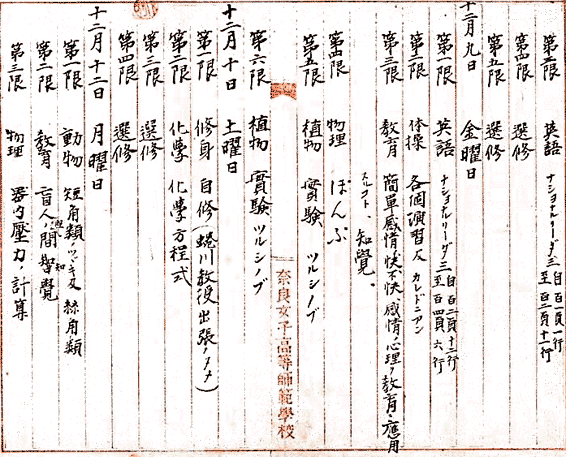 第三限 英語 ナショナルリーダ三 自百一頁一行 至百二頁十一行
第四限 選修
第五限 選修
十二月九日 金曜日
第一限 英語 ナショナルリーダ三 自百二頁十二行 至百四頁六行
第二限 体操 各個演習及カレドニアン
第三限 教育 簡単感情、快不快、感情ノ心理ノ教育ノ應用
知覺。
第四限 物理 ぽんぷ
第五限 植物 實驗 ツルシノブ
第六限 植物 實驗 ツルシノブ
十二月十日 土曜日
第一限 修身 自修(蜷川教授出張ノタメ)
第二限 化學 化學方程式
第三限 選修
第四限 選修
十二月十二日 月曜日
第一限 動物 短角類ノツヾキ及絲角類
第二限 教育 盲人ノ空間知覺
第三限 物理 器内壓力ノ計算
奈良女子高等師範學校